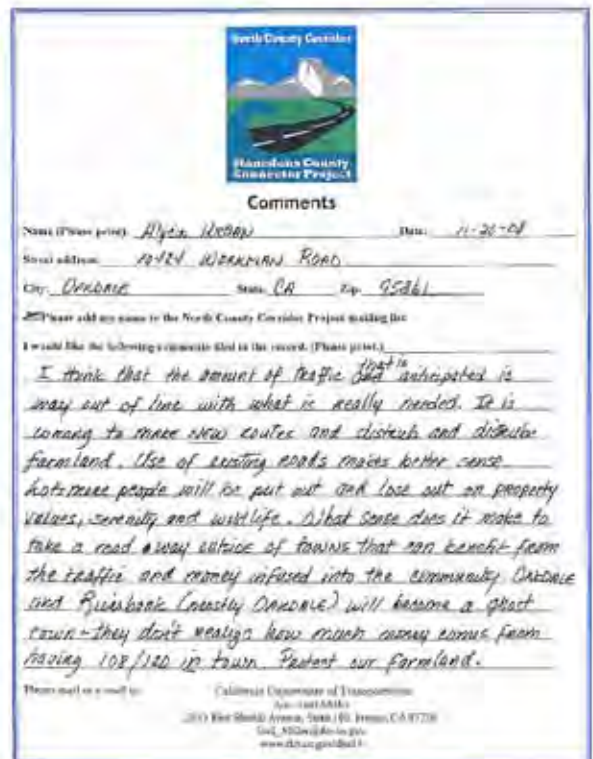 North County Corridor
Stanislaus County
Connector Project
Comments
Name (Please print): Urban Date:
Street address: Workman Road
City: Oakdale State: CA Zip: 95361
Please add my name to the North County Corridor Project mailing list
I would like the following comments filed in the record. (Please print.)
I think that the amount of traffic that is anticipated is
way out of line with what is really needed. It is
to make new routes and and
farmland. Use of existing roads makes better sense
Lots more people will be put out and lose out on property
values, serenity and wildlife. What sense does it make to
take a road away outside of towns that can benefit from
the traffic and money infused into the community Oakdale
and Riverbank (mostly Oakdale) will become a ghost
town - they don't how much money comes from
having 108/120 in town. Protect our farmland.
Please mail or e-mail to: California Department of Transportation